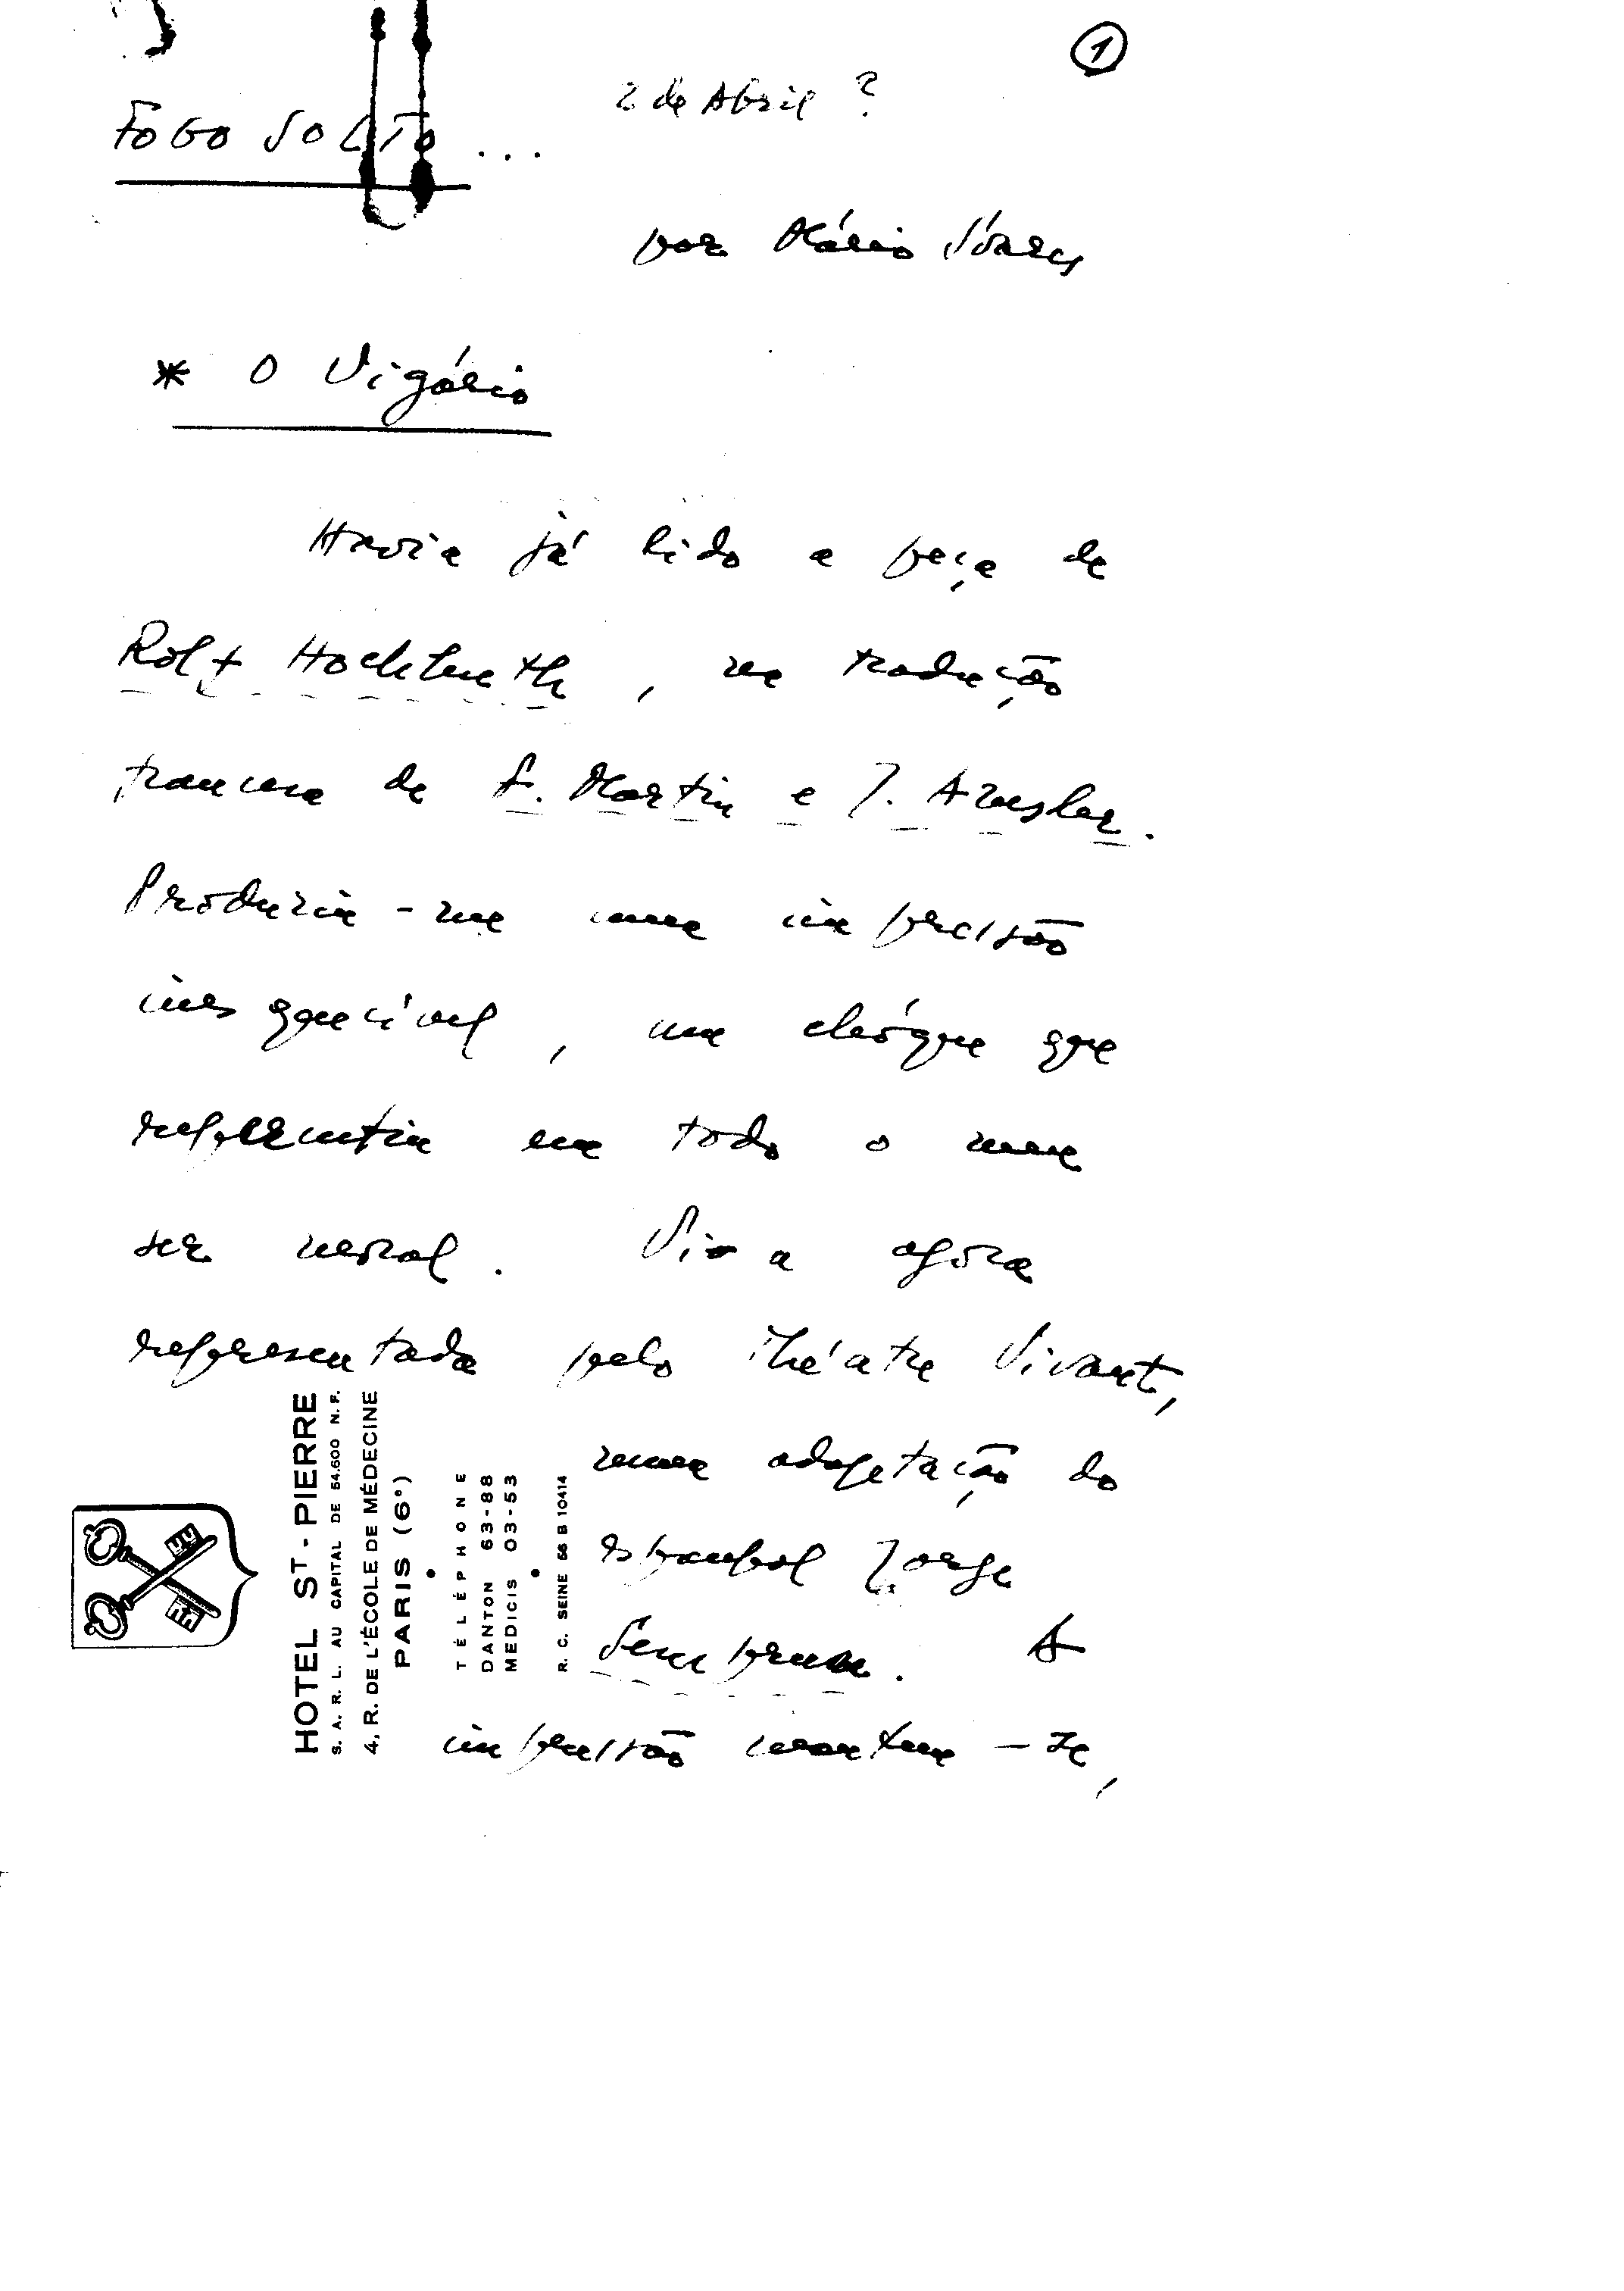 1
2 de Abril ?
FOGO SOLTO ...
por Mário Soares
* O Vigário
Havia já lido a peça de
Rolf Hochhuth, na tradução
francesa de F. Martin e J. Amsler.
Produziu-me uma impressão
inesquecível, um chóque que
repercutiu em todo o meu
ser moral. Vi-a agora
representada pelo Théatre Vivant,
numa adaptação do
espanhol Jorge
Semprun. A
impressão manteve-se,
HOTEL ST-PIERRE
S. A. R. L. AU CAPITAL DE 54.600 N. F.
4, R. DE L'ÉCOLE DE MÉDECINE
PARIS (6e)
TÉLÉPHONE
DANTON 63-88
MEDICIS 03-53
R. C. SEINE 56 B 10414